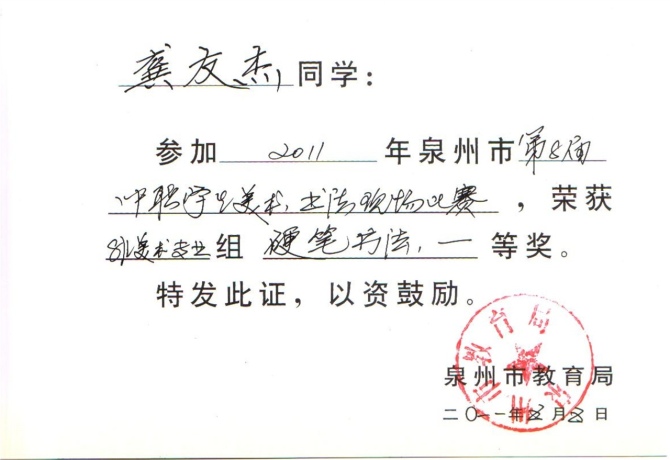 龚友杰同学：
参加 2011 年泉州市第8届
中职学生美术、书法现场比赛，荣获
非美术专业组 硬笔书法、一等奖。
特发此证，以资鼓励。
泉州市教育局
二〇一一年 月 日
泉州市教育局